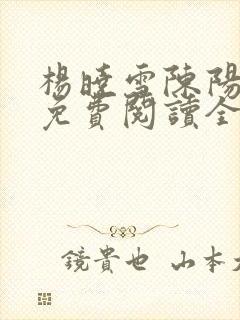 楊曉雪陳陽
免費閱讀全
鏡貴也 山本